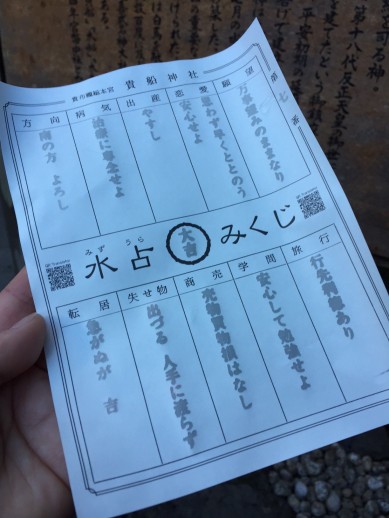 貴船總本宮 貴船神社
第七番
願望
万事望みのままなり
恋愛
思わず早くととのう
安心せよ
出産
やすし
病気
治療に専念せよ
方向
南の方 よろし
みず うら
水占 大吉 みくじ
旅行
行先利益あり
学問
安心して勉強せよ
商売
売物買物損はなし
失せ物
出づる 人手に渡らず
転居
急がぬが 吉
司名神。
第十八代反正天皇の
を建てたという
平安初期の